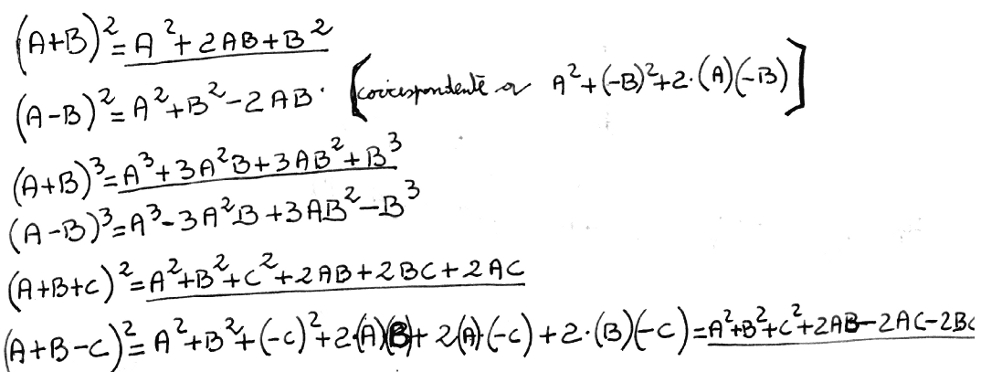 (A+B)²=A²+2AB+B²
(A-B)²=A²+B²-2AB. [corrispondente a A²+(-B)²+2·(A)(-B)]
(A+B)³=A³+3A²B+3AB²+B³
(A-B)³=A³-3A²B+3AB²-B³
(A+B+C)²=A²+B²+C²+2AB+2BC+2AC
(A+B-C)²=A²+B²+(-C)²+2·(A)(B)+2(A)·(-C)+2·(B)(-C)=A²+B²+C²+2AB-2AC-2BC